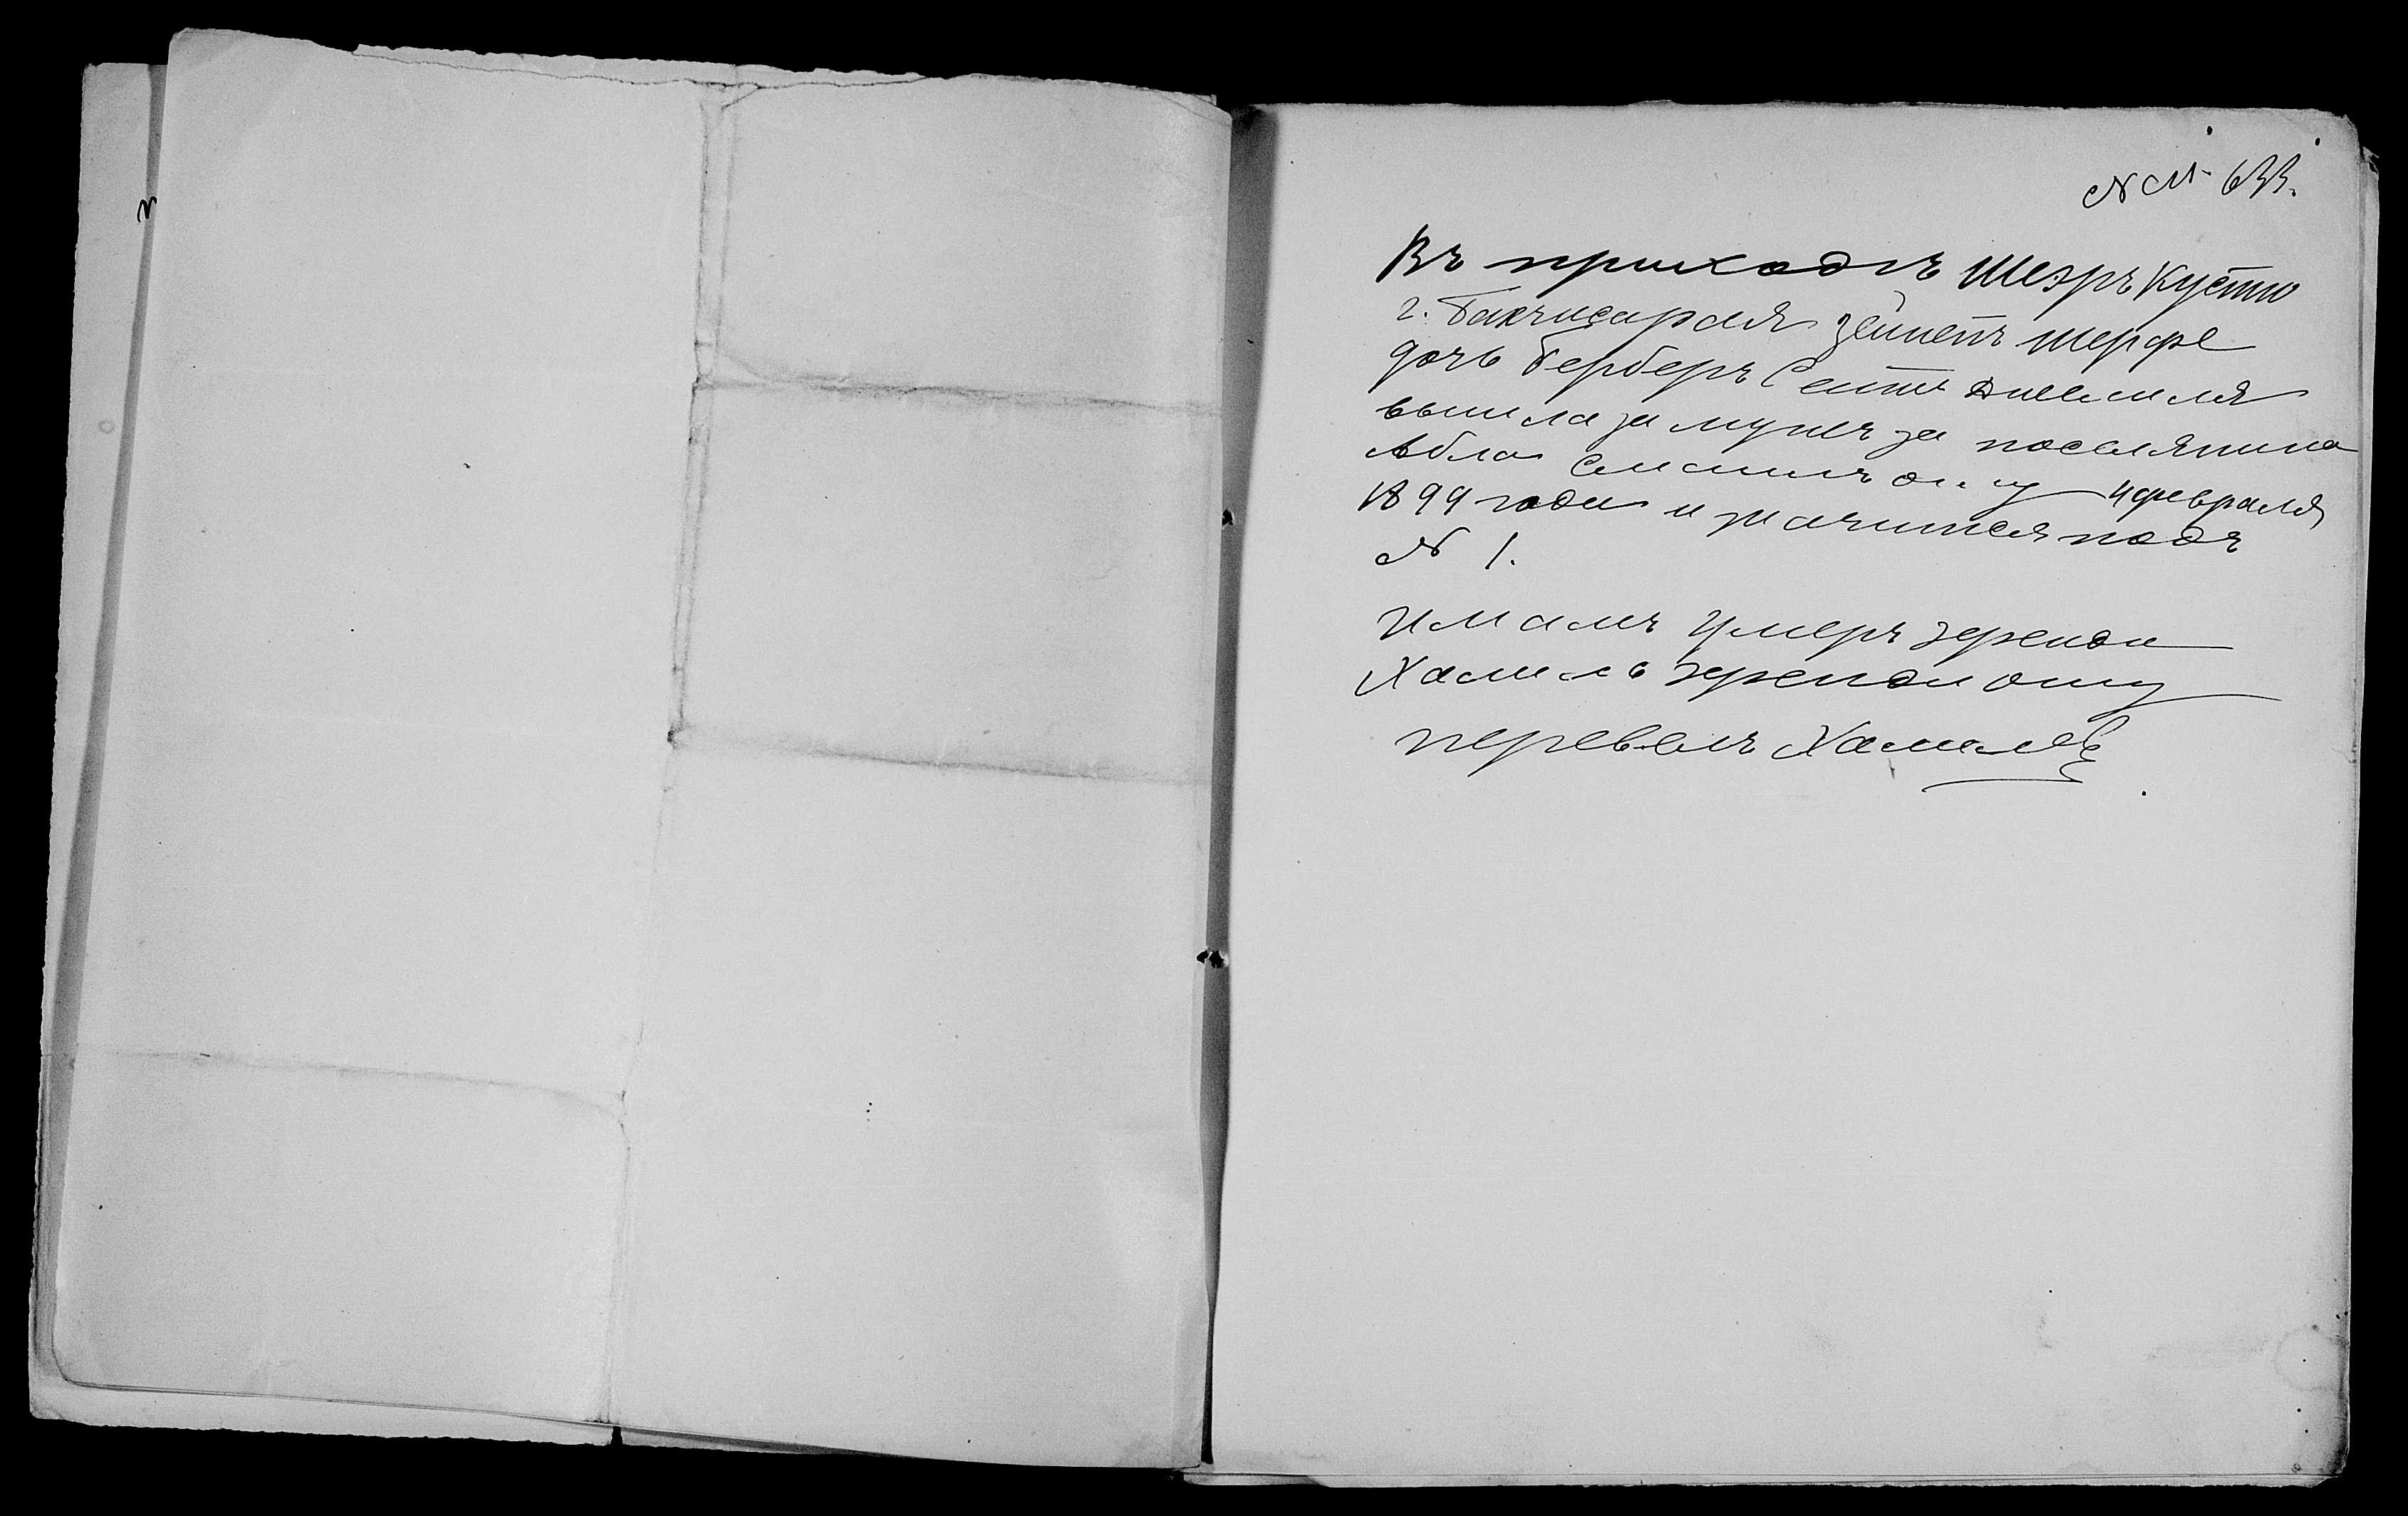 N М. 633.
Въ приходѣ Шеэръ Кусто
г. Бахчисарая Зейнепъ Шерфе
дочь Берберъ Сеитъ Джелиля
вышла замужъ за поселянина
Абла Смаилъ оглу 4 февраля
1899 года и значится подъ
N 1.
Имамъ Умеръ эфенди
Халиль эфенди оглу
перевелъ